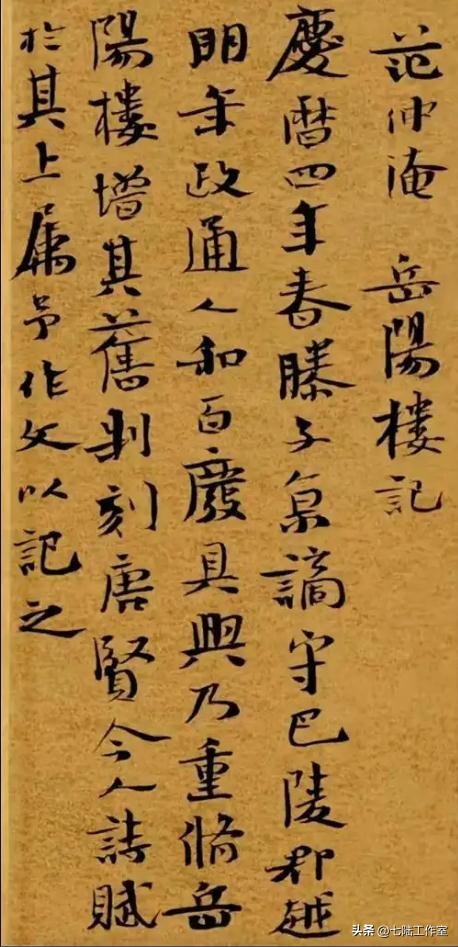 范仲淹 岳陽樓記
慶曆四年春滕子京謫守巴陵郡越
明年政通人和百廢具興乃重脩岳
陽樓增其舊制刻唐賢今人詩賦
於其上屬予作文以記之
头条 @七陆工作室